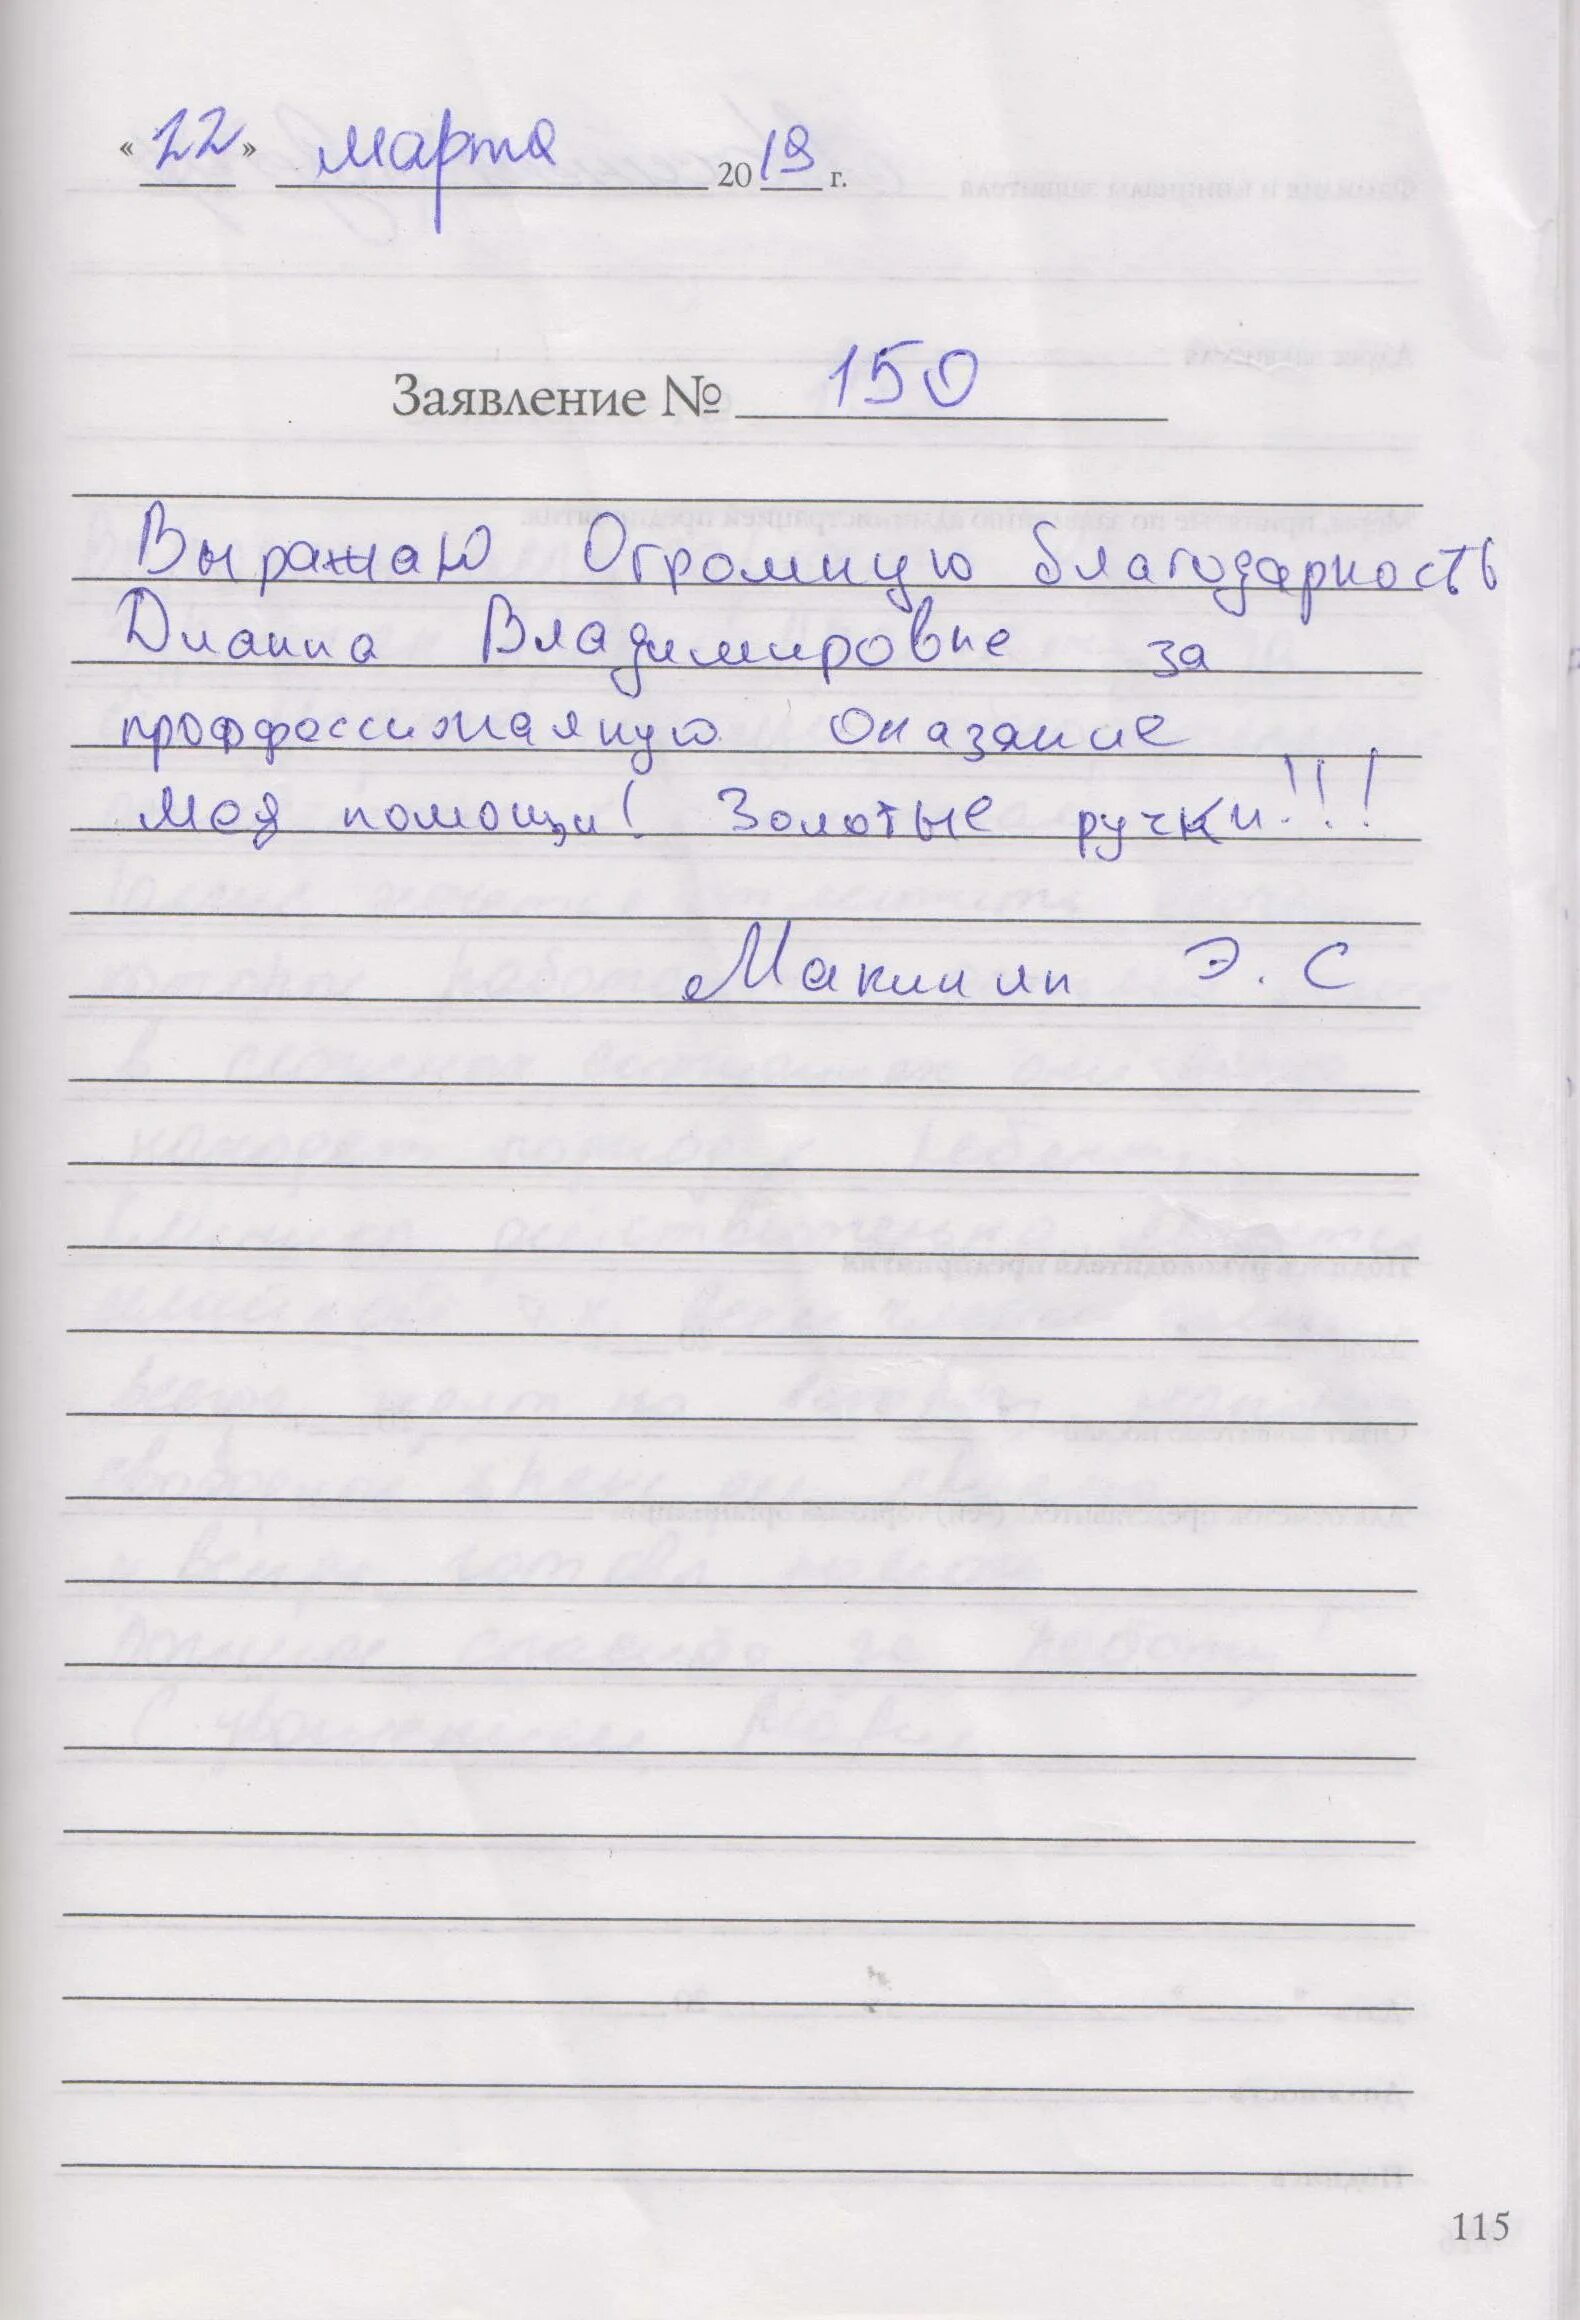 «22» марта 2019 г.
Заявление № 150
Выражаю Огромную благодарность
Дианна Владимировне за
проффессианаяную оказание
мед помощи! Золотые ручки!!!
Макинян Э. С
115